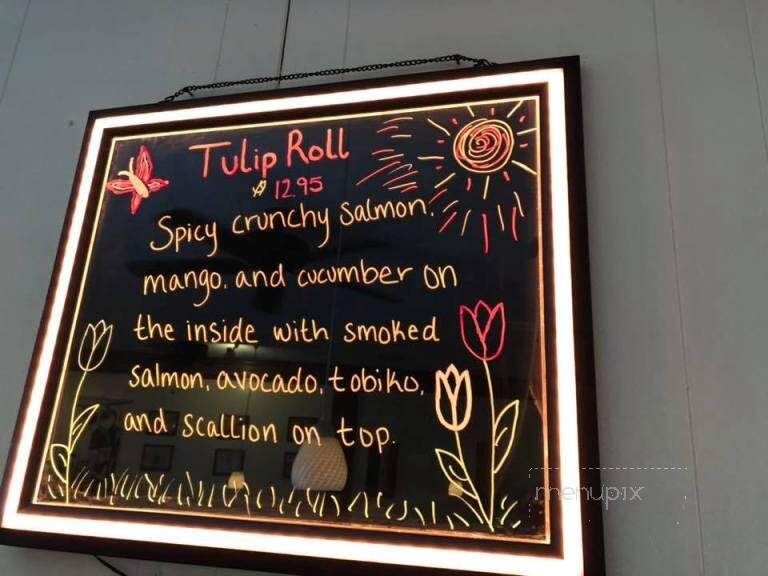 Tulip Roll
$ 12.95
Spicy crunchy salmon.
mango. and cucumber on
the inside with smoked
salmon, avocado, tobiko,
and scallion on top.
menupix